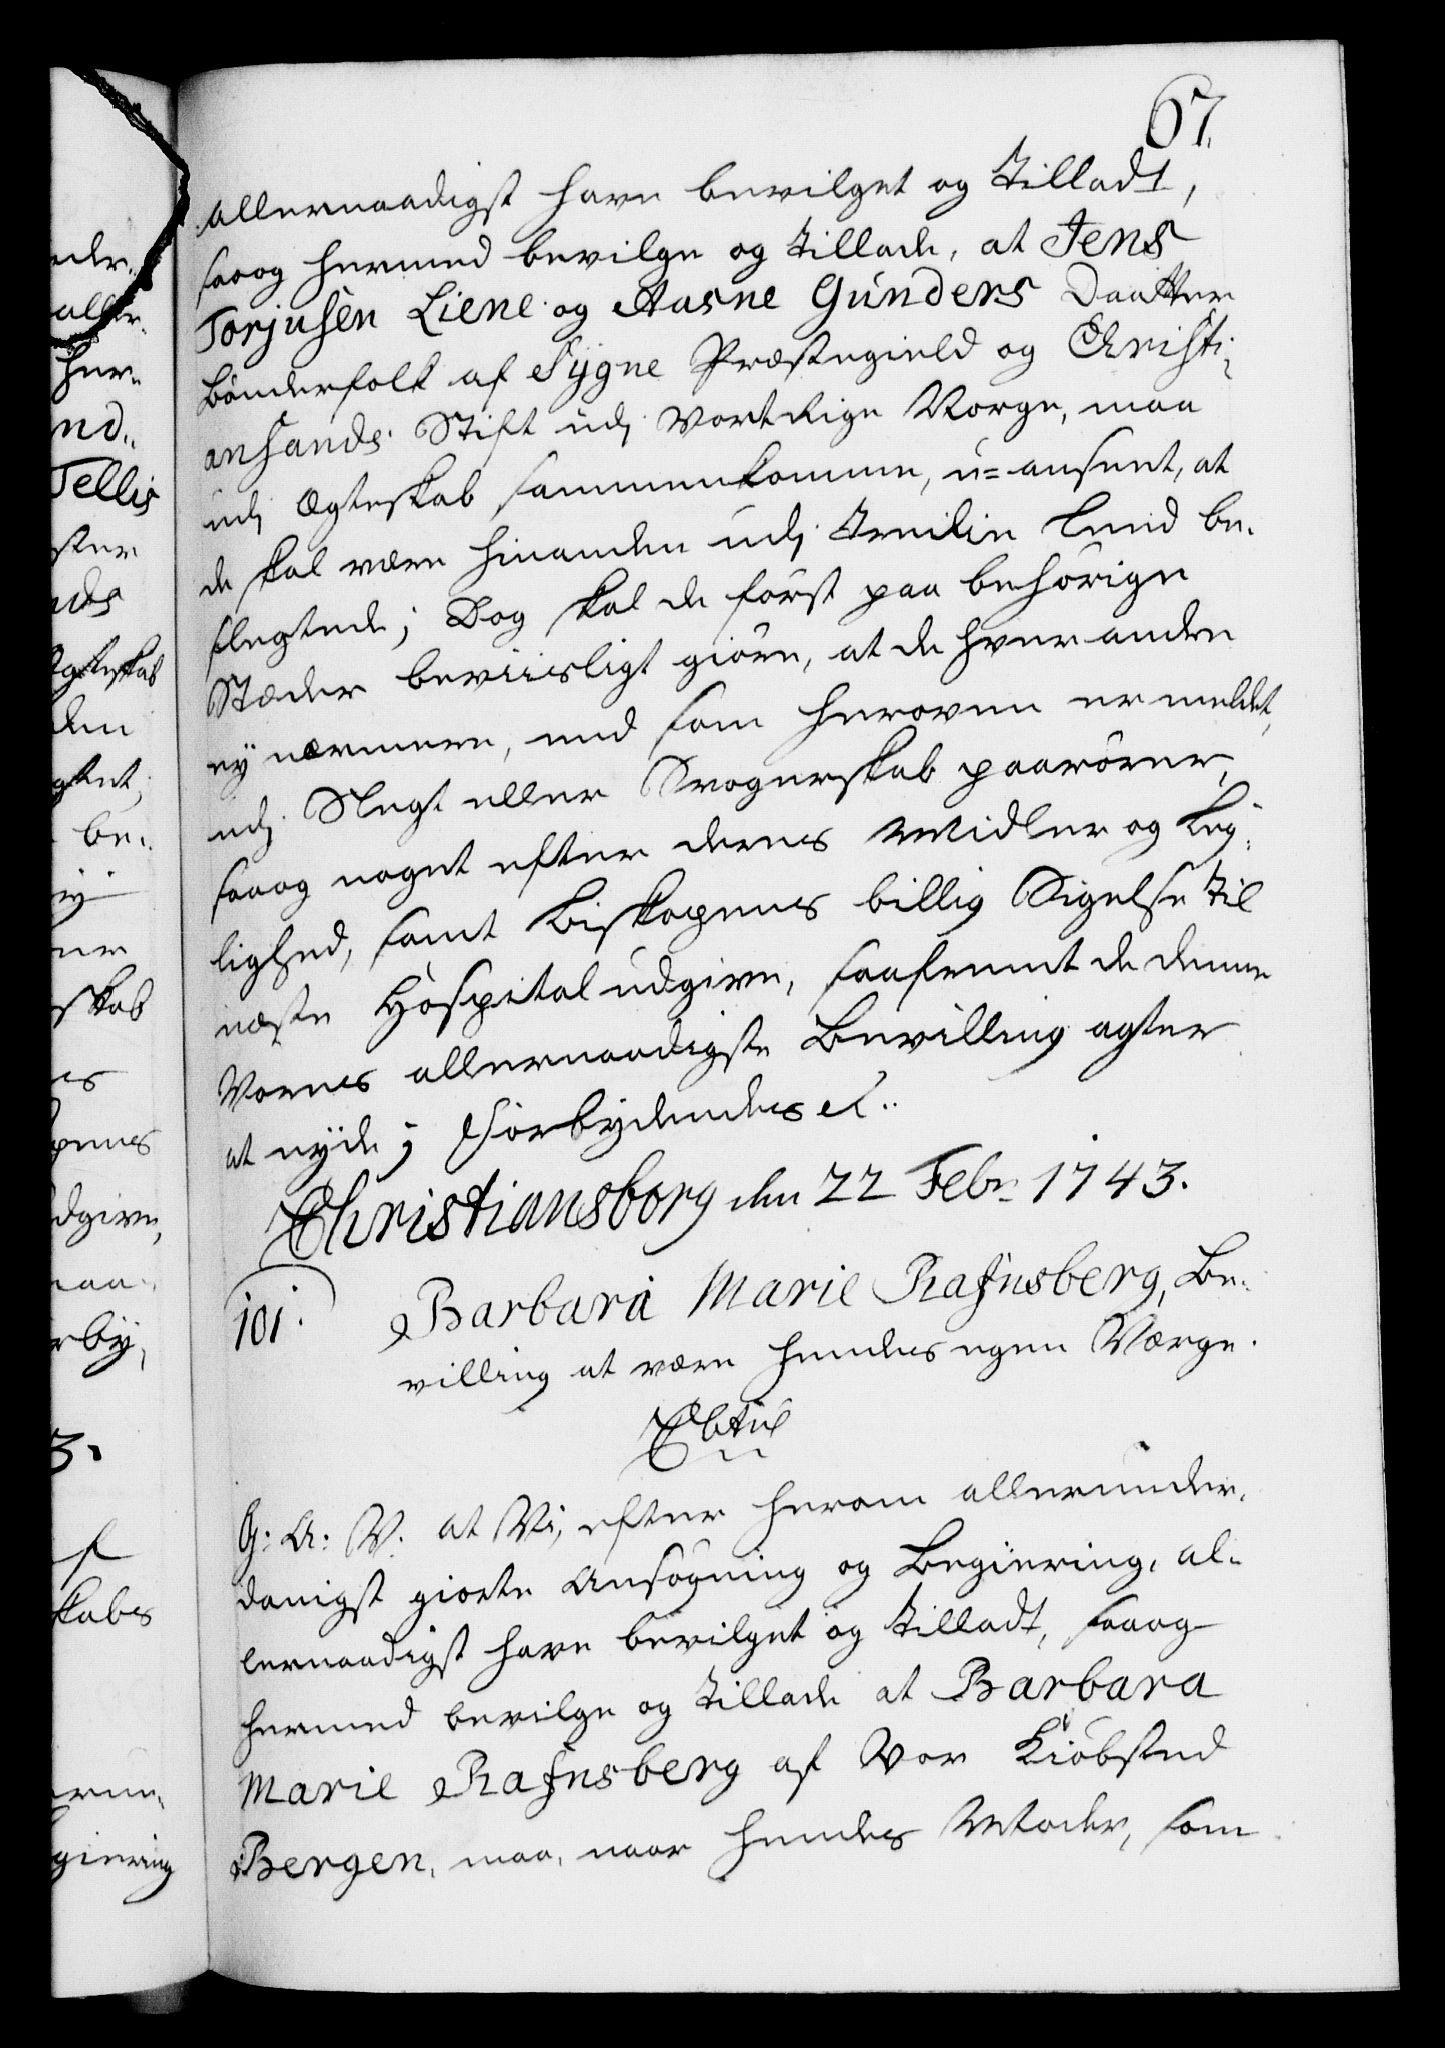 67.
allernaadigst have bevilget og tilladt,
saaog hermed bevilge og tillade, at Jens
Torjusen Liene og Aasne Gunders Daatter
bønderfolk af Sygne Præstegield og Christi-
ansands Stift udj vort Rige Norge, maa
udj Ægteskab sammenkomme, u=anseet, at
de skal være hinanden udj tredie Leed be-
slegtede; Dog skal de først paa behørige
Stæder beviisligt giøre, at de hverandre
ey nærmere, end som heroven er meldet,
udj Slegt eller Svogerskab paarører,
saaog noget efter deres Midler og Ley-
lighed, samt Biskopens billig Sigelse til
næste Hospital udgive, saafremt de denne
Vores allernaadigste Bevilling agter
at nyde; Forbydendes &..
Christiansborg den 22 Febr. 1743.
101. Barbara Marie Rafnsberg, Be-
villing at være hendes egen Værge.
G: A: V: at Vi, efter herom allerunder-
danigst giorte Ansøgning og Begiering, al-
lernaadigst have bevilget og tilladt, saaog
hermed bevilge og tillade at Barbara
Marie Rafnsberg af Vor Kiøbsted
Bergen, maa, naar hendes Moder, som